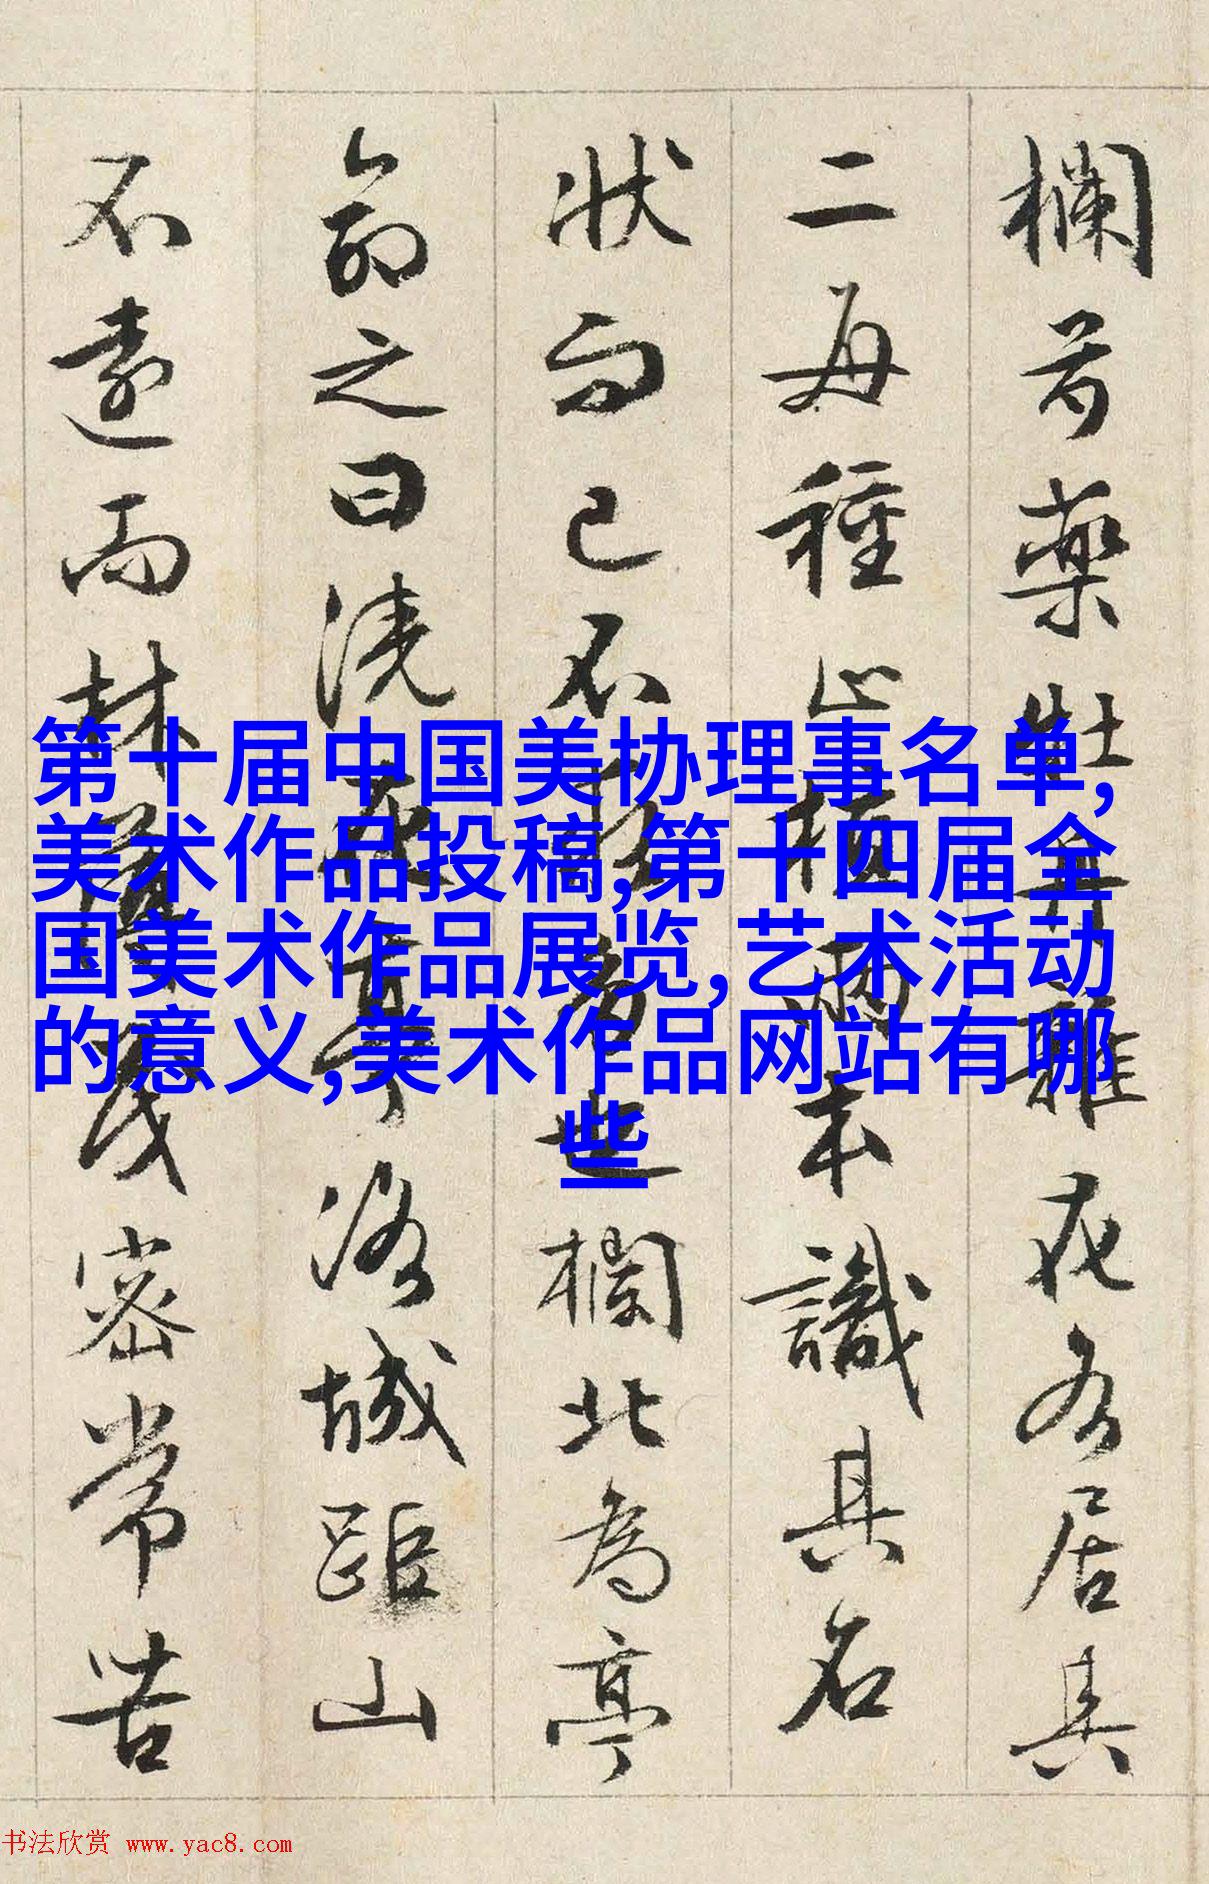 欄芍藥牡丹雜花各居其
二每種止植兩本識其名
狀而已不求多也欄北為亭
命之曰澆花亭洛城距山
不遠而林薄茂密常苦
第十届中国美协理事名单,
美术作品投稿,第十四届全
国美术作品展览,艺术活动
的意义,美术作品网站有哪
些
书法欣赏 www.yac8.com